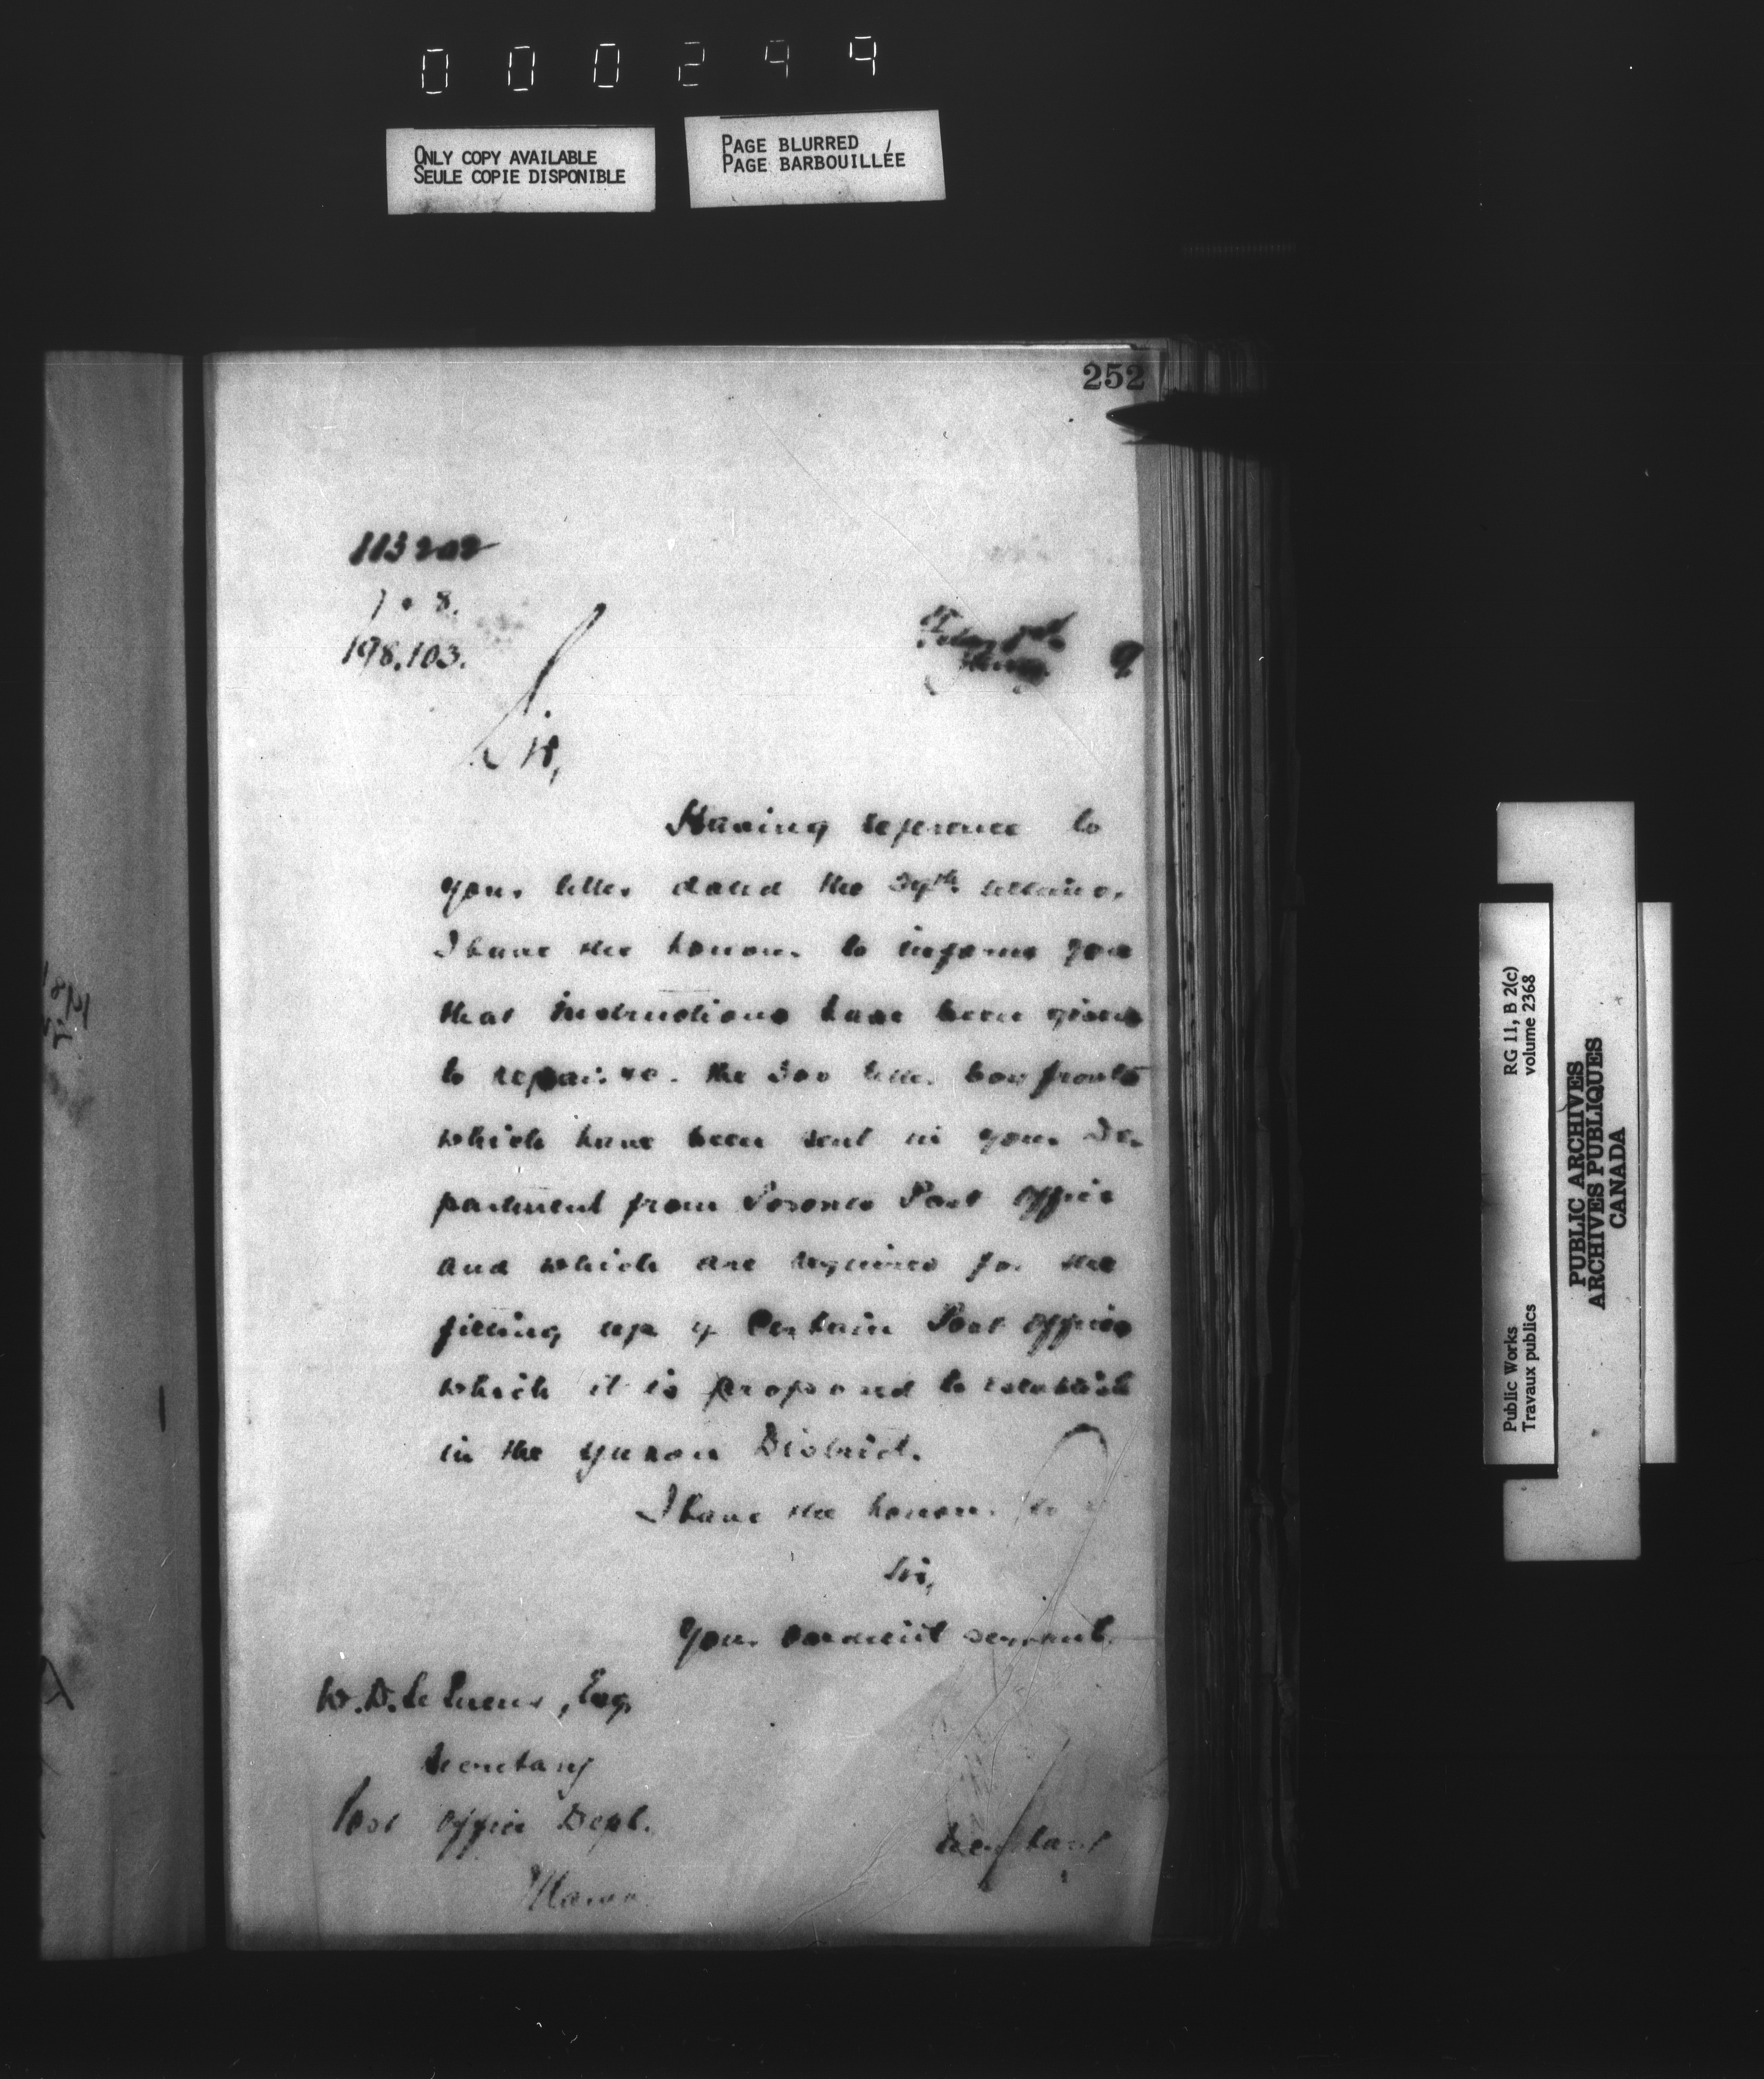 000299
ONLY COPY AVAILABLE
SEULE COPIE DISPONIBLE
PAGE BLURRED
PAGE BARBOUILLÉE
252
113202
198.103.
9
Sir,
Having reference to
your letter dated the ultimo,
I have the honour to inform you
that instructions have been given
to repair &c. the 300 letter box fronts
which have been sent in your De-
partment from Toronto Post Office
and which are required for the
fitting up of certain Post Offices
which it is proposed to establish
in the Yukon District.
I have the honour to
Sir,
Your obedient servant,
W. D. Le Sueur, Esq.
Secretary
Post Office Dept.
Ottawa.
Secretary
Public Works
Travaux publics
RG 11, B 2(c)
volume 2368
PUBLIC ARCHIVES
ARCHIVES PUBLIQUES
CANADA